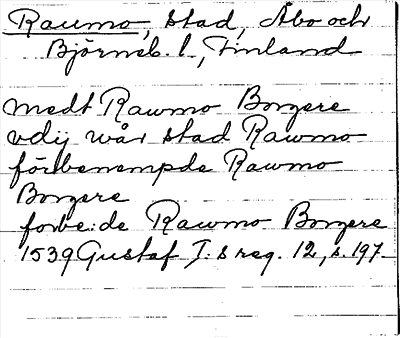 Raumo, stad, Åbo och
Björneb. l., Finland
medt Rawmo Borgere
vdij wår stad Rawmo
förbenempde Rawmo
Borgere
forbe:de Rawmo Borgere
1539 Gustaf I.s reg. 12, s. 197.